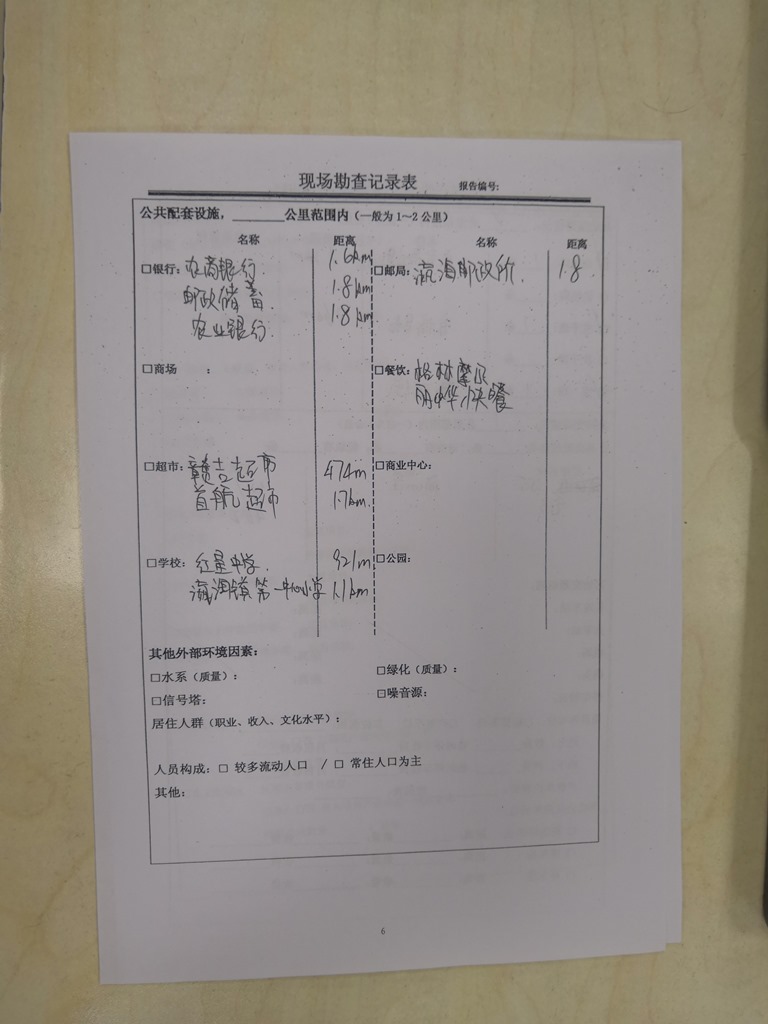 现场勘查记录表 报告编号:
公共配套设施，________公里范围内（一般为 1～2 公里）
名称 距离 名称 距离
□银行: 农商银行. 1.6km □邮局: 瀛海邮政所. 1.8.
邮政储蓄. 1.8km
农业银行. 1.8km
□商场 : □餐饮: 格林摩尔
丽中华快餐
□超市: 赣吉超市 474m □商业中心:
首航超市 1.7km.
□学校: 红星中学. 921m □公园:
瀛海镇第一中心小学 1.1km
其他外部环境因素:
□水系（质量）: □绿化（质量）:
□信号塔: □噪音源:
居住人群（职业、收入、文化水平）:
人员构成: □ 较多流动人口 / □ 常住人口为主
其他:
6